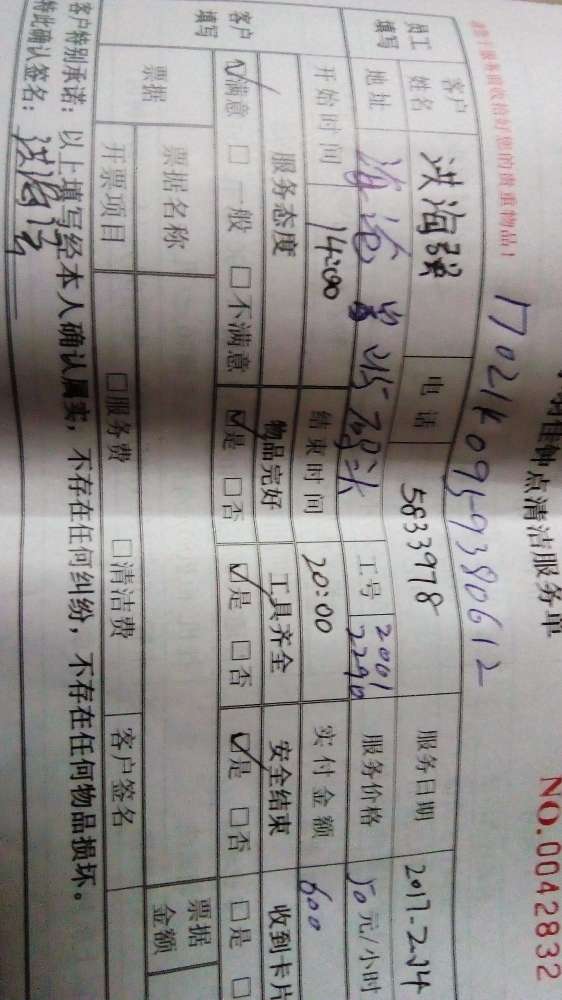 钟点清洁服务单
NO.0042832
17021K095-9380612
请于服务前收拾好您的贵重物品！
员工填写
客户姓名 洪海强 电话 5833978 服务日期 2017-2.24
地址 工号 2001 2290 服务价格 50元/小时
开始时间 14:00 结束时间 20:00 实付金额 600
客户填写
服务态度 物品完好 工具齐全 安全结束 收到卡片
☑满意 □一般 □不满意 ☑是 □否 ☑是 □否 ☑是 □否 □是 □
票据
票据名称 票据金额
开票项目 □服务费 □清洁费 客户签名
客户特别承诺：以上填写经本人确认属实，不存在任何纠纷，不存在任何物品损坏。
特此确认签名：